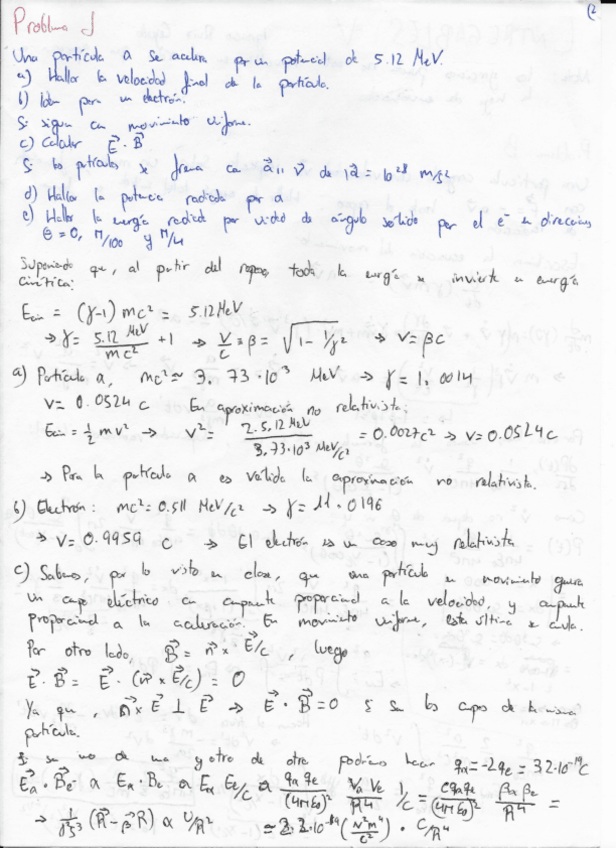 (2
Problema 1
Una partícula α se acelera por un potencial de 5.12 MeV.
a) Hallar la velocidad final de la partícula.
b) Idem para un electrón.
Si siguen con movimiento uniforme.
c) Calcular E⃗·B⃗
Si las partículas se frenan con a⃗ || v⃗ de |a⃗| = 10²⁸ m/s²
d) Hallar la potencia radiada por α
e) Hallar la energía radiada por unidad de ángulo sólido por el e⁻ en direcciones
θ = 0, π/100 y π/4
Suponiendo que, al partir del reposo, toda la energía se invierte en energía
cinética:
Ecin = (γ-1) mc² = 5.12 MeV
→ γ = 5.12 MeV / mc² + 1 → v/c = β = √(1 - 1/γ²) → v = βc
a) Partícula α, mc² ≃ 3.73·10⁻³ MeV → γ = 1.0014
v = 0.0524 c En aproximación no relativista:
Ecin = ½ mv² → v² = 2·5.12 MeV / 3.73·10³ MeV/c² = 0.0027c² → v = 0.0524c
→ Para la partícula α es válida la aproximación no relativista.
b) Electrón: mc² = 0.511 MeV/c² → γ = 11.0196
→ v = 0.9959 c → El electrón es un caso muy relativista
c) Sabemos, por lo visto en clase, que una partícula en movimiento genera
un campo eléctrico con componente proporcional a la velocidad, y componente
proporcional a la aceleración. En movimiento uniforme, esta última se anula.
Por otro lado, B⃗ = n⃗ × E⃗/c, luego
E⃗·B⃗ = E⃗·(n⃗ × E⃗/c) = 0
Ya que, n⃗ × E⃗ ⊥ E⃗ → E⃗·B⃗ = 0 si son los campos de la misma
partícula.
Si son uno de una y otro de otra podríamos hacer qα = -2qe = 3.2·10⁻¹⁹C
E⃗α·B⃗e ∝ Eα·Be ∝ Eα Ee/c ∝ qα qe/(4πε₀)² Vα Ve/R⁴ 1/c = c qα qe/(4πε₀)² βα βe/R⁴ =